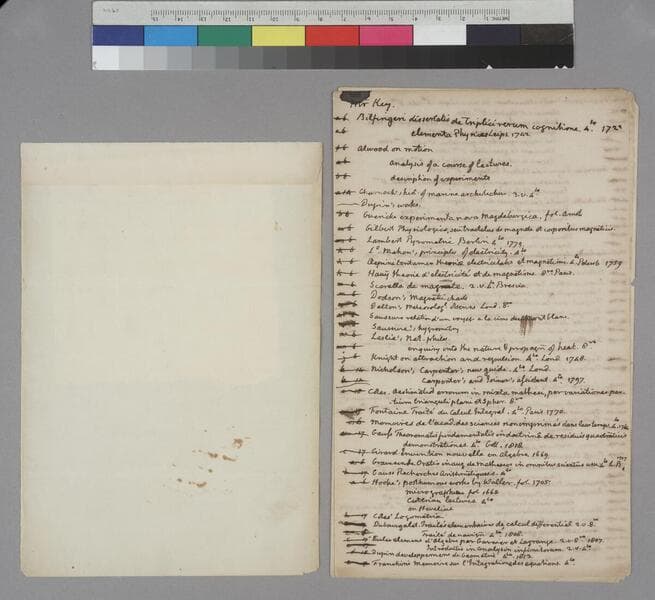 Mr Key.
Bilfingeri dissertatio de triplici rerum cognitione. 4to. 1722
elementa Physices Leips 1742
Atwood on motion
analysis of a course of lectures.
description of experiments
Charnock's hist. of marine architecture 2.v.4to
Dupin's works.
Guericke experimenta nova Magdeburgica, fol. Amst
Gilbert Physiologia, seu tractatus de magnete et corporibus magneticis.
Lambert Pyrometrie Berlin 4to 1779.
Ld Mahon's principles of electricity. 4to
Aepinus tentamen theoriae electricitatis et magnetismi. 4to Petersb 1759
Haüy theorie d'electricité et de magnetisme. 8vo Paris.
Scarella de magnete. 2.v.4to Brescia.
Dodson's Magnetic charts
Dalton's Meteorolog. Lond. 8vo
Saussure relation d'un voyage a la cime du mont blanc.
Saussure's hygrometry
Leslie's Nat. philos.
enquiry into the nature & propagn of heat. 8vo
Knight on attraction and repulsion 4to Lond 1748.
Nicholson's Carpenter's new guide. 4to Lond.
Carpenter's and Joiner's assistant. 4to 1797.
Cotes. aestimatio errorum in mixta mathesi, per variationes partium
trianguli plani et spher. 8vo
Fontaine Traité du calcul integral. 4to Paris 1770.
Memoires de l'acad. des sciences non imprimés dans leur temps. 4to
Gauss Theorematis fundamentalis in doctrina de residuis quadraticis
demonstrationes. 4to Gott. 1818.
Girard Invention nouvelle en Algebre 1629.
Gravesande Oratio
Gauss Recherches Arithmetiques. 4to
Hooke's posthumous works by Waller. fol. 1705.
micrographia fol 1665
Cutlerian lectures 4to
on Hevelius
Cotes' Logometria
Dubourguet. Traités elementaires de calcul differentiel 2.v.8vo
Traité de navign 4to. 1808.
Euler elemens d'Algebre par Garnier et Lagrange. 2.v.8vo 1807.
Introductio in analysin infinitorum. 2.v.4to
Dupin developpemens de Geometrie 4to. 1813
Français Memoire sur l'Integration des equations 4to